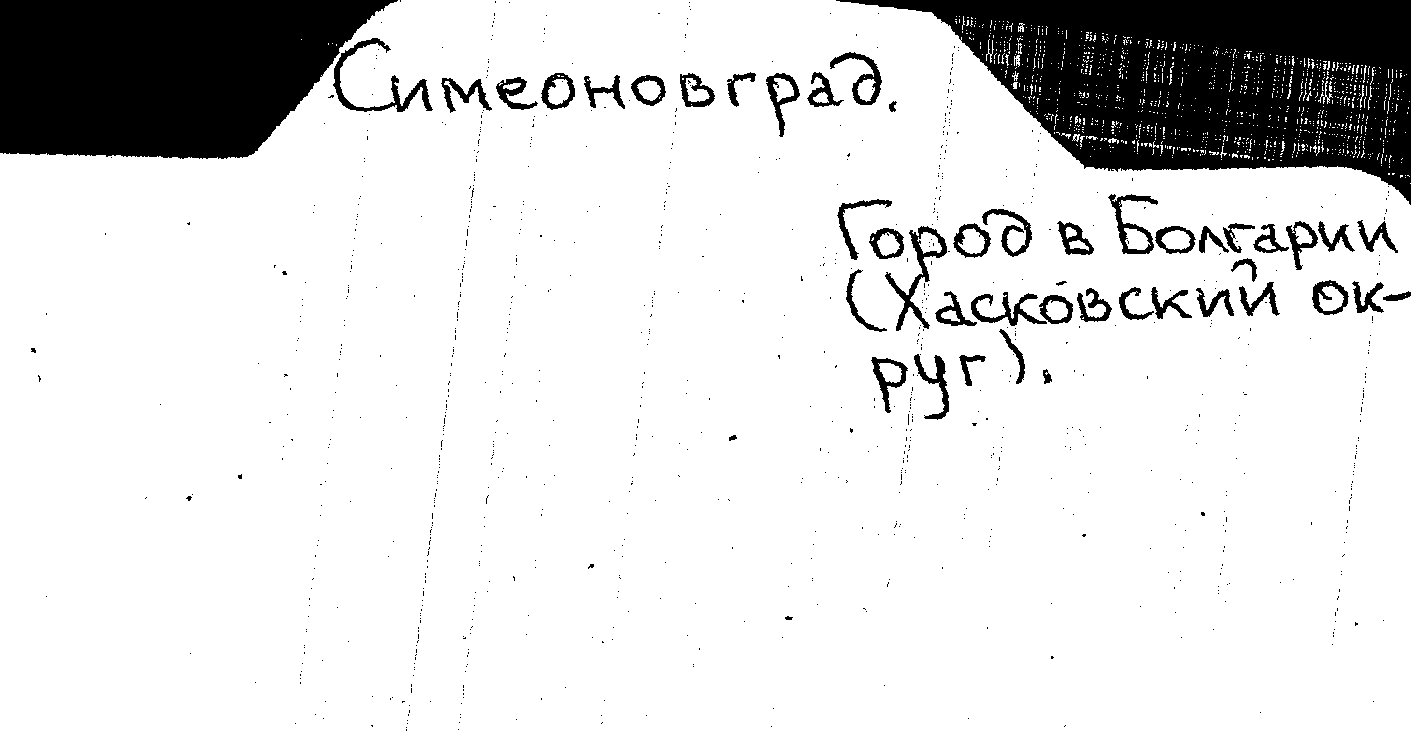 Симеоновград.
Город в Болгарии
(Хаско́вский ок-
руг).